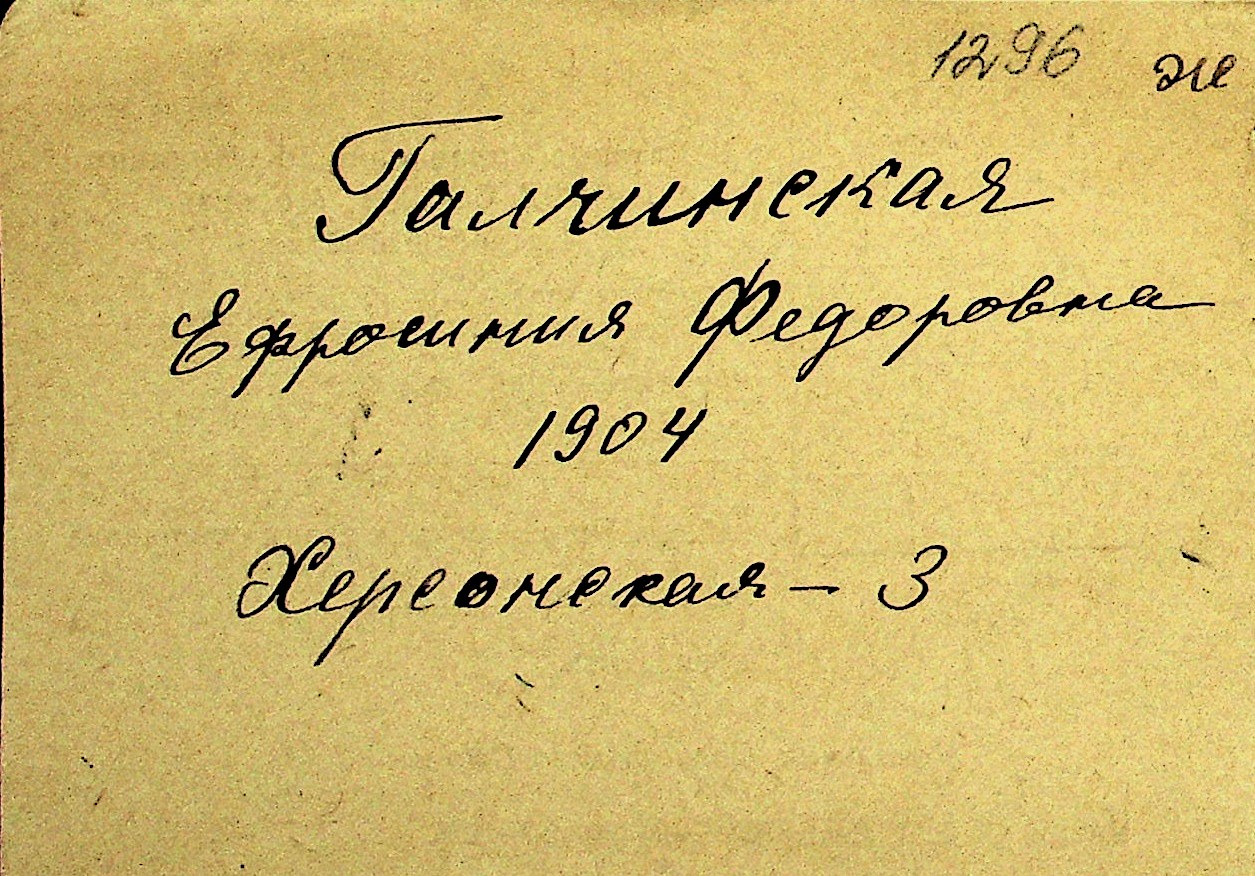 1296 ж
Галчинская
Ефросиния Федоровна
1904
Херсонская - 3